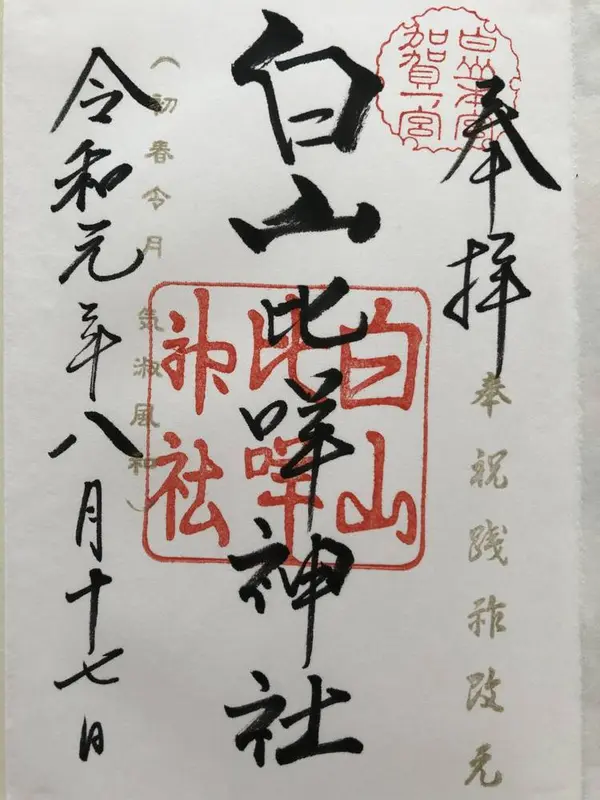 白山本宮
加賀一宮
奉拝
奉祝践祚改元
白山比咩神社
白山
比咩
神社
(初春令月 気淑風和)
令和元年八月十七日